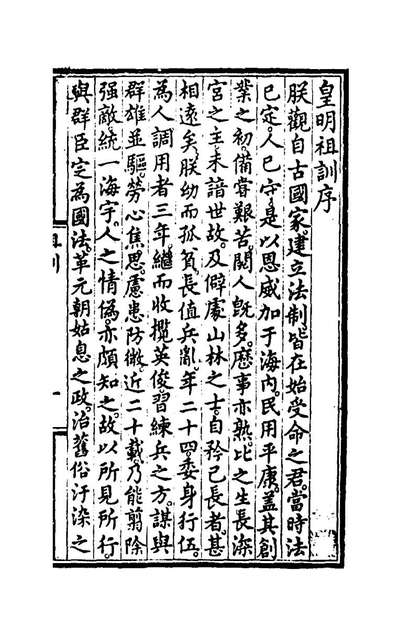 皇明祖訓序
朕觀自古國家建立法制皆在始受命之君當時法
已定人已守是以恩威加于海內民用平康蓋其創
業之初備嘗艱苦閱人旣多歷事亦熟比之生長深
宮之主未諳世故及僻處山林之士自矜己長者甚
相遠矣朕幼而孤貧長值兵亂年二十四委身行伍
為人調用者三年繼而收攬英俊習練兵之方謀與
群雄並驅勞心焦思慮患防微近二十載乃能翦除
强敵統一海宇人之情偽亦頗知之故以所見所行
與群臣定為國法革元朝姑息之政治舊俗汙染之